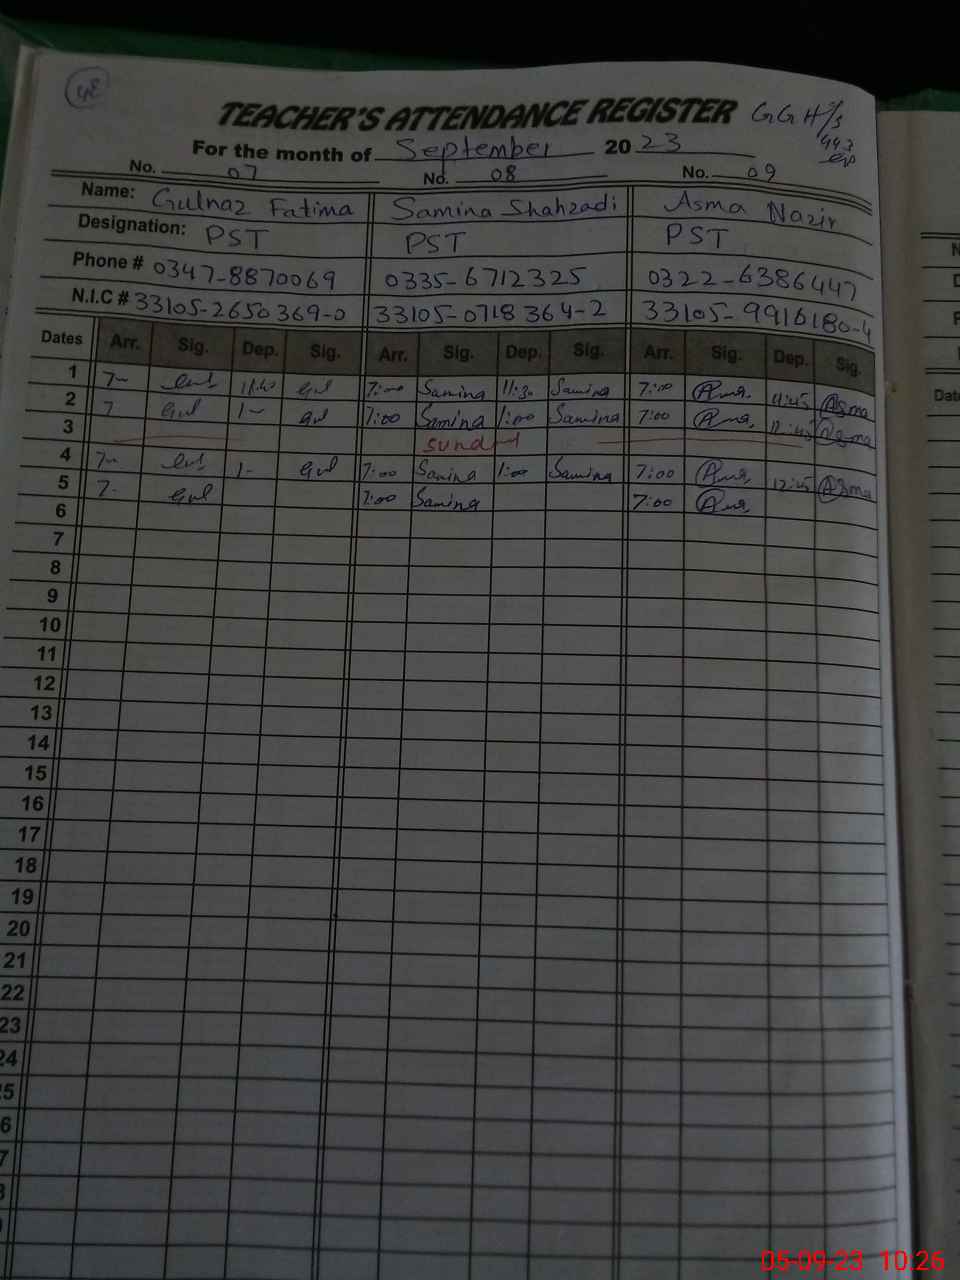 48
TEACHER'S ATTENDANCE REGISTER GGH/S
443
For the month of September 2023
No. 07 No. 08 No. 09
Name: Gulnaz Fatima Samina Shahzadi Asma Nazir
Designation: PST PST PST
Phone # 0347-8870069 0335-6712325 0322-6386447
N.I.C # 33105-2650369-0 33105-0718364-2 33105-9916180-4
Dates Arr. Sig. Dep. Sig. Arr. Sig. Dep. Sig. Arr. Sig. Dep. Sig.
1 7- Gul Gul 7:00 Samina 11:30 Samina 7:00 Asma 11:45 Asma
2 7 Gul 1- Gul 7:00 Samina 1:00 Samina 7:00 Asma Asma
3 Sunday
4 7- Gul 1- Gul 7:00 Samina 1:00 Samina 7:00 Asma 12:45 Asma
5 7- Gul 7:00 Samina 7:00 Asma
6
7
8
9
10
11
12
13
14
15
16
17
18
19
20
21
22
23
24
5
6
7
05-09-23 10:26